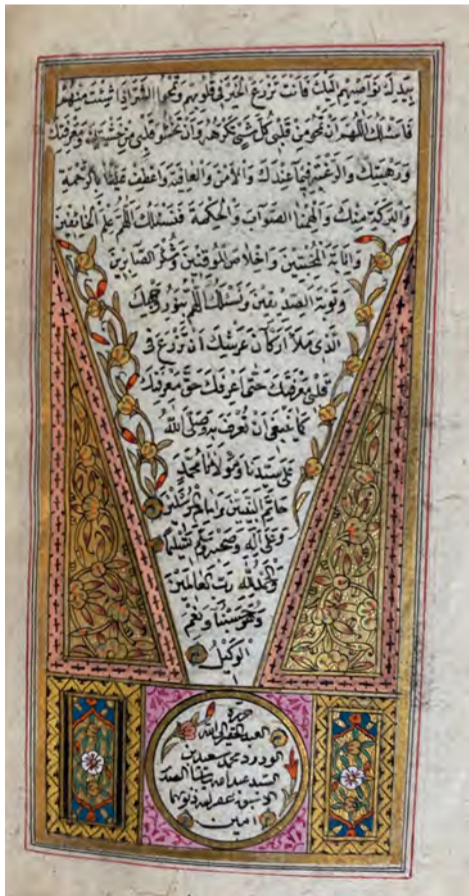 بِيَدِكَ نَوَاصِيهِمْ إِلَيْكَ فَأَنْتَ تَزْرَعُ الْخَيْرَ فِي قُلُوبِهِمْ وَتَمْحُو الشَّرَّ إِذَا شِئْتَ مِنْهُمْ
فَأَسْئَلُكَ اللَّهُمَّ أَنْ تَمْحُوَ مِنْ قَلْبِي كُلَّ شَيْءٍ تَكْرَهُهُ وَأَنْ تَحْشُوَ قَلْبِي مِنْ خَشْيَتِكَ وَمَعْرِفَتِكَ
وَرَهْبَتِكَ وَالرَّغْبَةِ فِيمَا عِنْدَكَ وَالْأَمْنَ وَالْعَافِيَةَ وَاعْطِفْ عَلَيْنَا بِالرَّحْمَةِ
وَالْبَرَكَةِ مِنْكَ وَأَلْهِمْنَا الصَّوَابَ وَالْحِكْمَةَ فَنَسْئَلُكَ اللَّهُمَّ عِلْمَ الْخَائِفِينَ
وَإِنَابَةَ الْمُخْبِتِينَ وَإِخْلَاصَ الْمُوقِنِينَ وَشُكْرَ الصَّابِرِينَ
وَتَوْبَةَ الصِّدِّيقِينَ وَنَسْئَلُكَ اللَّهُمَّ بِنُورِ وَجْهِكَ
الَّذِي مَلَأَ أَرْكَانَ عَرْشِكَ أَنْ تَزْرَعَ فِي
قَلْبِي مَعْرِفَتَكَ حَتَّى أَعْرِفَكَ حَقَّ مَعْرِفَتِكَ
كَمَا يَنْبَغِي أَنْ تُعْرَفَ بِهِ وَصَلَّى اللَّهُ
عَلَى سَيِّدِنَا وَمَوْلَانَا مُحَمَّدٍ
خَاتَمِ النَّبِيِّينَ وَإِمَامِ الْمُرْسَلِينَ
وَعَلَى آلِهِ وَصَحْبِهِ وَسَلَّمَ تَسْلِيمًا
وَالْحَمْدُ لِلَّهِ رَبِّ الْعَالَمِينَ
وَهُوَ حَسْبُنَا وَنِعْمَ
الْوَكِيلُ
حرره
العبد الفقير الى الله
الودود محمد سعيد بن
السيد عبدالله
غفر الله ذنوبهما
امين